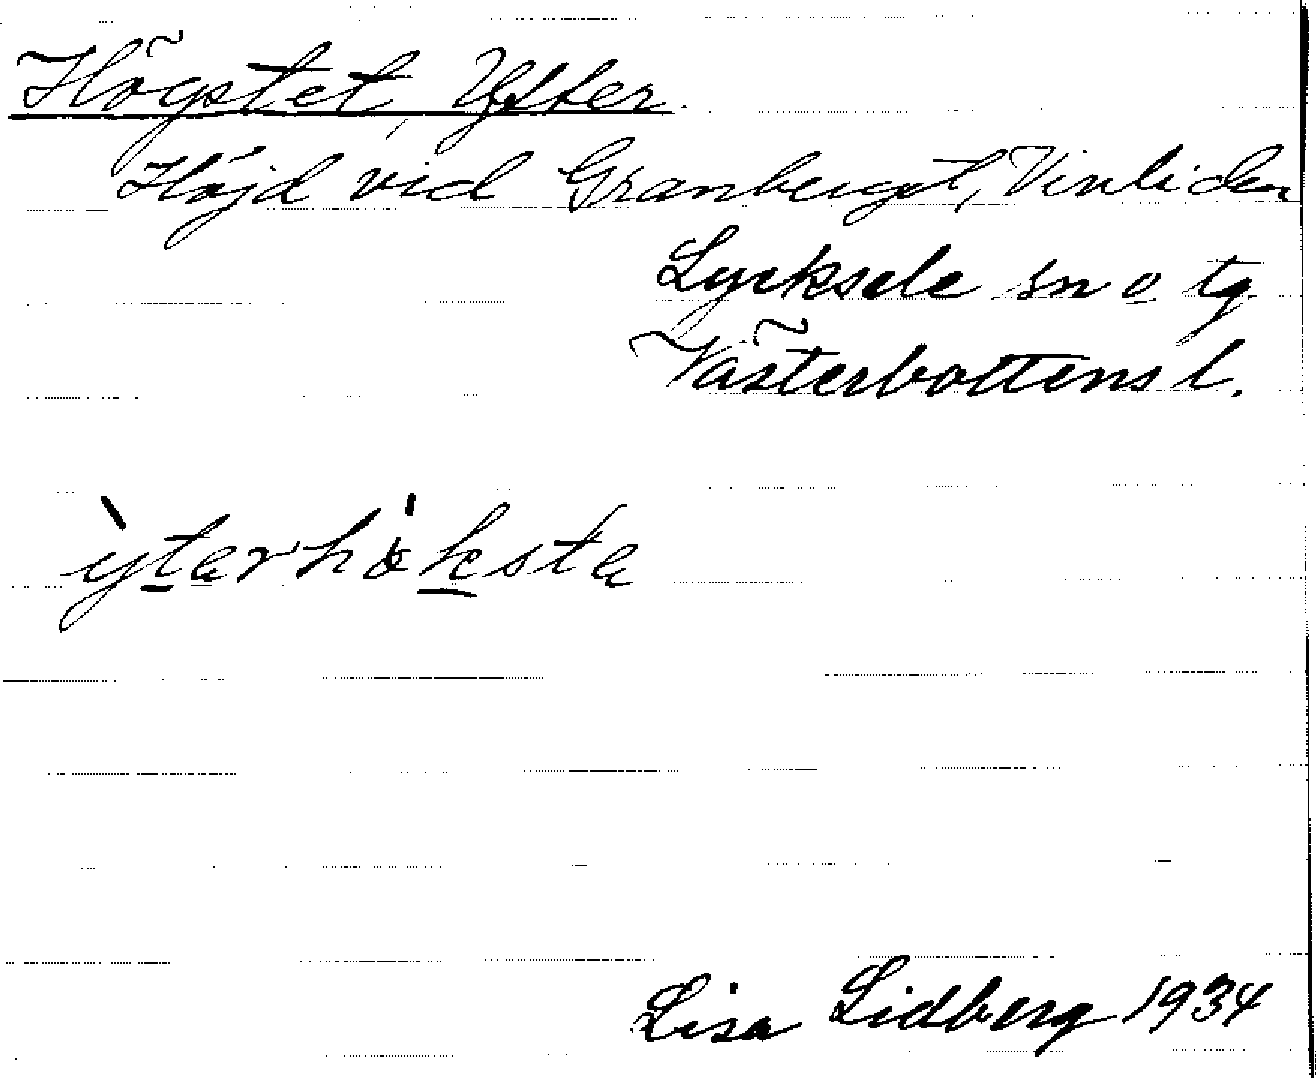 Högstet, Ytter.
Höjd vid Granberget, Vinliden
Lycksele sn o tg
Västerbottens l.
ytərhökstə
Lisa Lidberg 1934